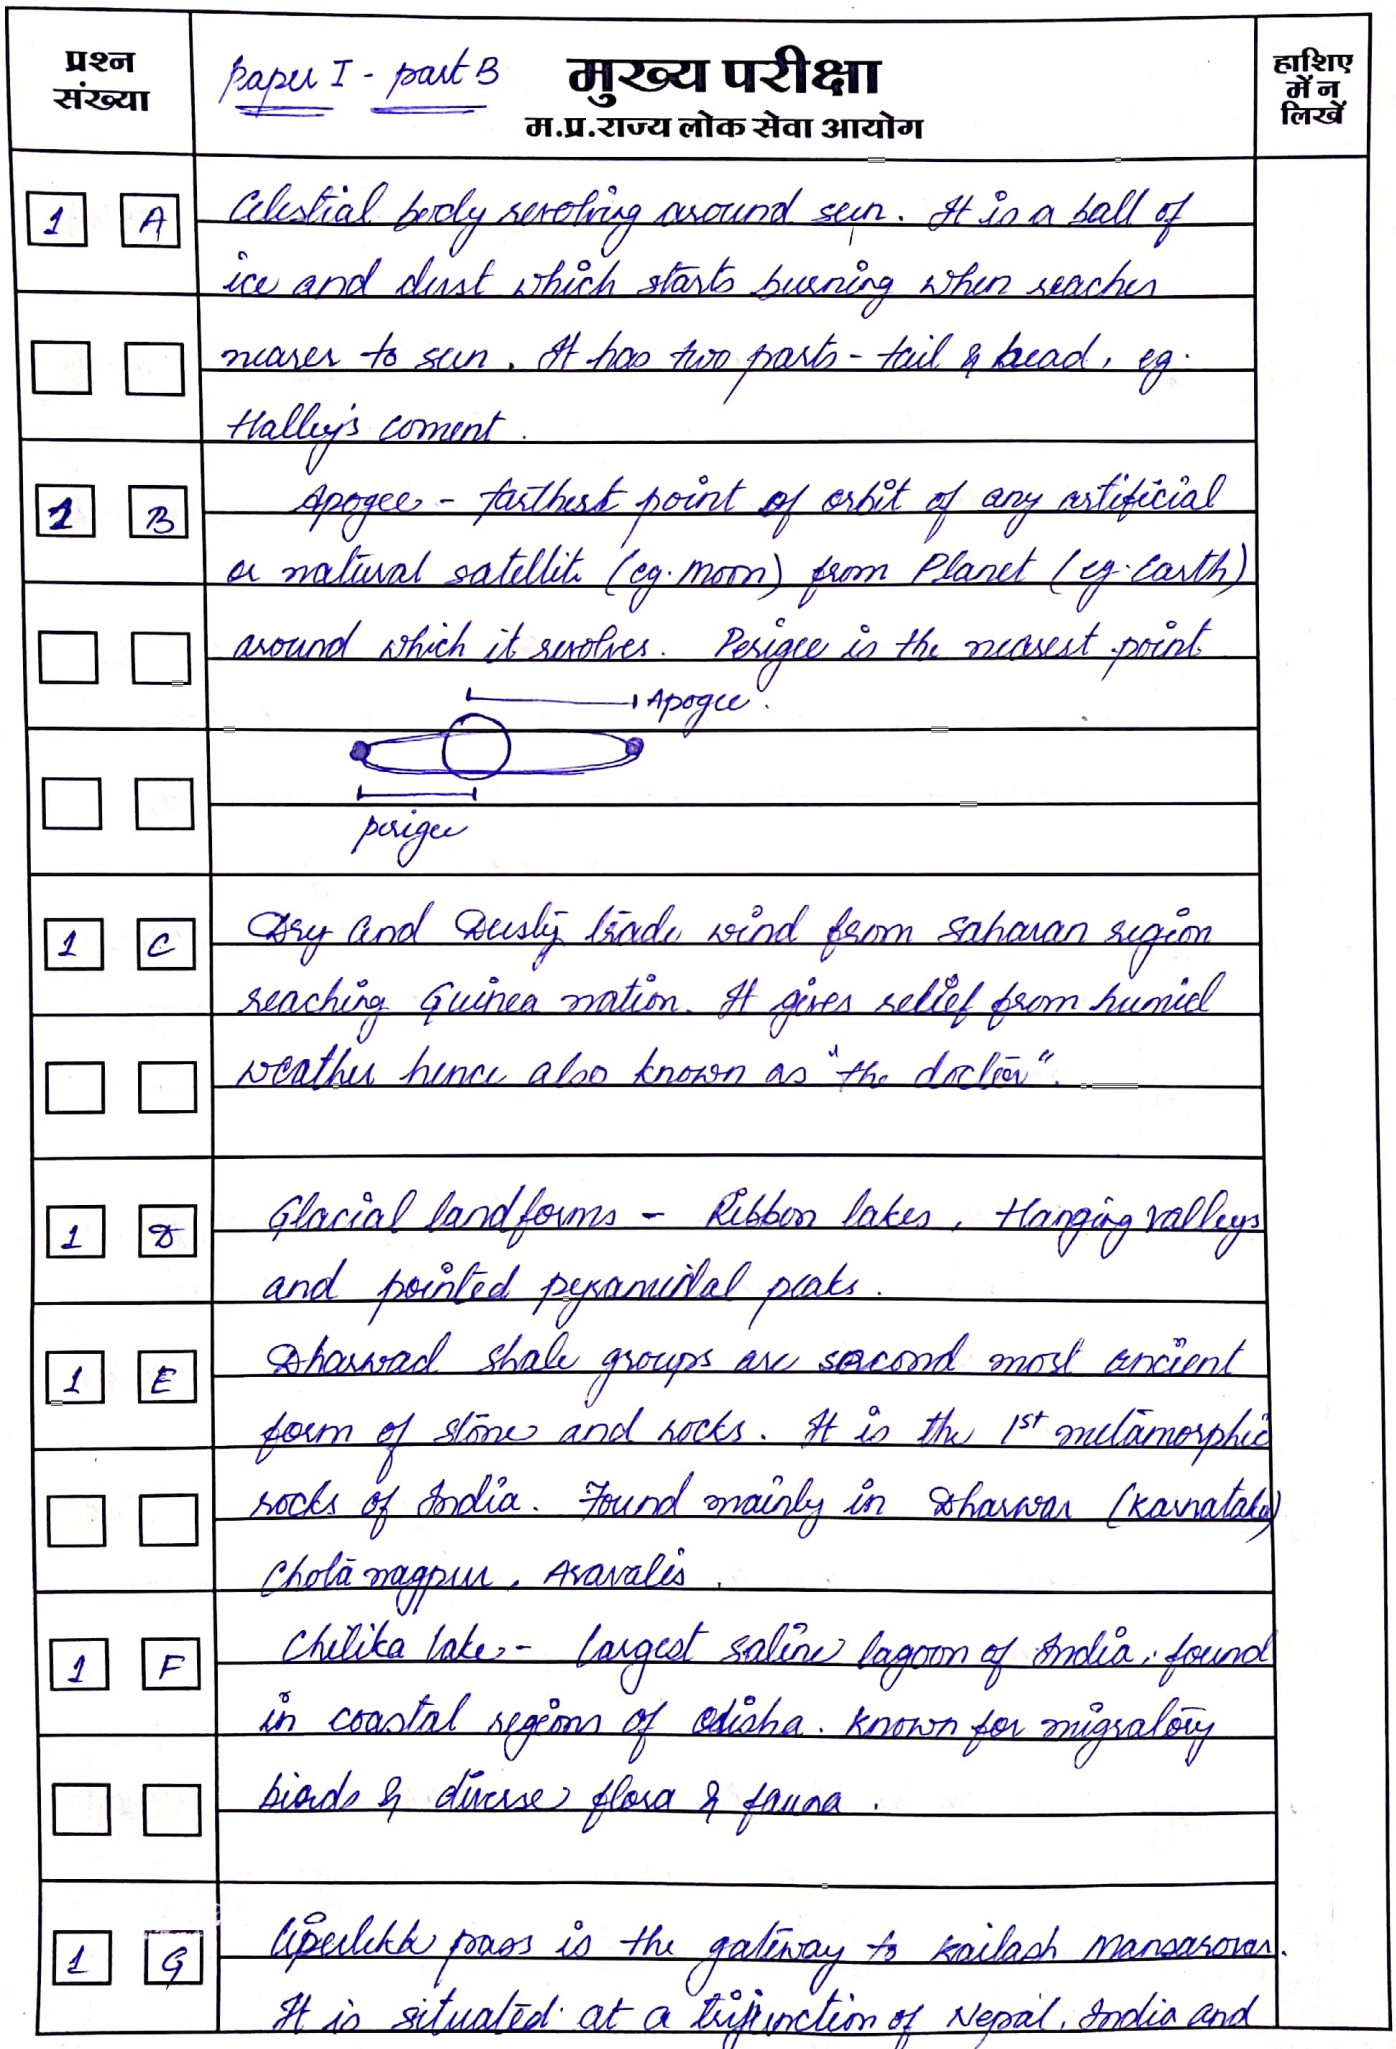 प्रश्न
संख्या
Paper I - part B
मुख्य परीक्षा
म.प्र.राज्य लोक सेवा आयोग
हाशिए
में न
लिखें
1 A
Celestial body revolving around sun. It is a ball of
ice and dust which starts burning when reaches
nearer to sun. It has two parts - tail & head, eg.
Halley's coment.
1 B
Apogee - farthest point of orbit of any artificial
or natural satellite (eg. Moon) from Planet (eg. Earth)
around which it revolves. Perigee is the nearest point
Apogee.
perigee
1 C
Dry and Dusty trade wind from Saharan region
reaching Guinea nation. It gives relief from humid
weather hence also known as "the doctor".
1 D
Glacial landforms - Ribbon lakes, Hanging valleys
and pointed pyramidal peaks.
1 E
Dharwad shale groups are second most ancient
form of stone and rocks. It is the 1st metamorphic
rocks of India. Found mainly in Dharwar (Karnataka)
Chota nagpur, Aravalis.
1 F
Chilika lake - largest saline lagoon of India, found
in coastal regions of Odisha. Known for migratory
birds & diverse flora & fauna.
1 G
pass is the gateway to Kailash Mansarovar.
It is situated at a trijunction of Nepal, India and